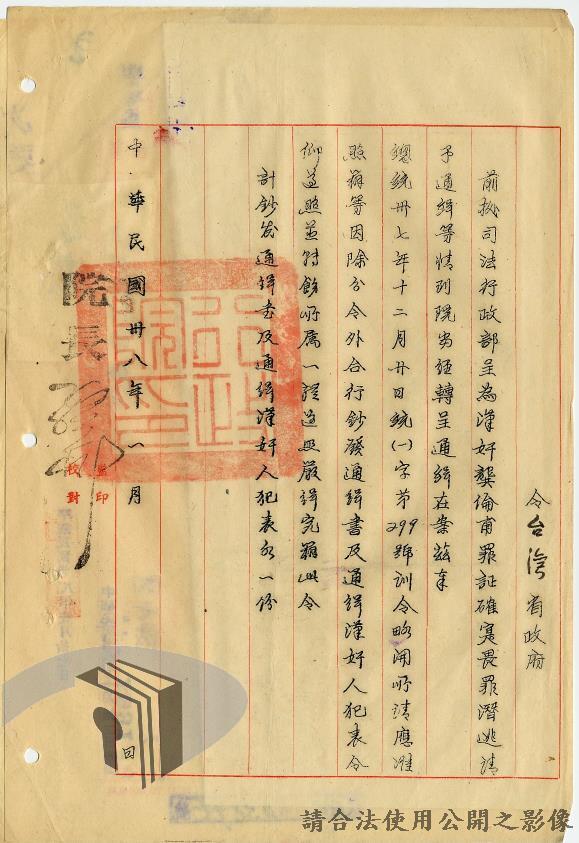 令台灣省政府
前拠司法行政部呈為漢奸龔倫甫罪証確寔畏罪潛逃請
予通緝等情到院當經轉呈通緝在案茲奉
總統卅七年十二月廿日統(一)字第299號訓令略開所請應准
照辦等因除分令外合行鈔發通緝書及通緝漢奸人犯表令
仰遵照並轉飭所属一體遵照嚴緝究辦此令
計鈔发通緝書及通緝漢奸人犯表各一份
中華民國卅八年一月 日
院長
監印
校對
請合法使用公開之影像